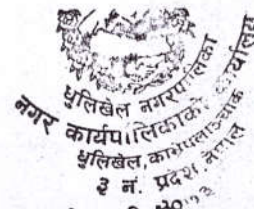 धुलिखेल नगरपालिका
नगर कार्यपालिकाको कार्यालय
धुलिखेल, काभ्रेपलाञ्चोक
३ नं. प्रदेश, नेपाल